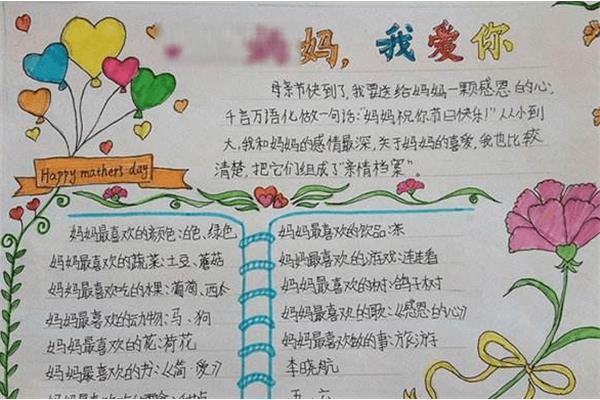 妈,我爱你
母亲节快到了,我要送给妈妈一颗感恩的心,
千言万语化做一句话:“妈妈祝你节日快乐!”从小到
大,我和妈妈的感情最深,关于妈妈的喜爱,我也比较
清楚,把它们组成了“亲情档案”。
Happy mathers day
妈妈最喜欢的颜色:白色、绿色
妈妈最喜欢的蔬菜:土豆、蘑菇
妈妈最喜欢吃的水果:葡萄、西瓜
妈妈最喜欢的动物:马、狗
妈妈最喜欢的花:荷花
妈妈最喜欢的书:《简·爱》
妈妈最喜欢的
妈妈最喜欢的饮品:茶
妈妈最喜欢的游戏:连连看
妈妈最喜欢的树:鸽子树
妈妈最喜欢的歌:《感恩的心》
妈妈最喜欢做的事:旅游
李晓航
五、六